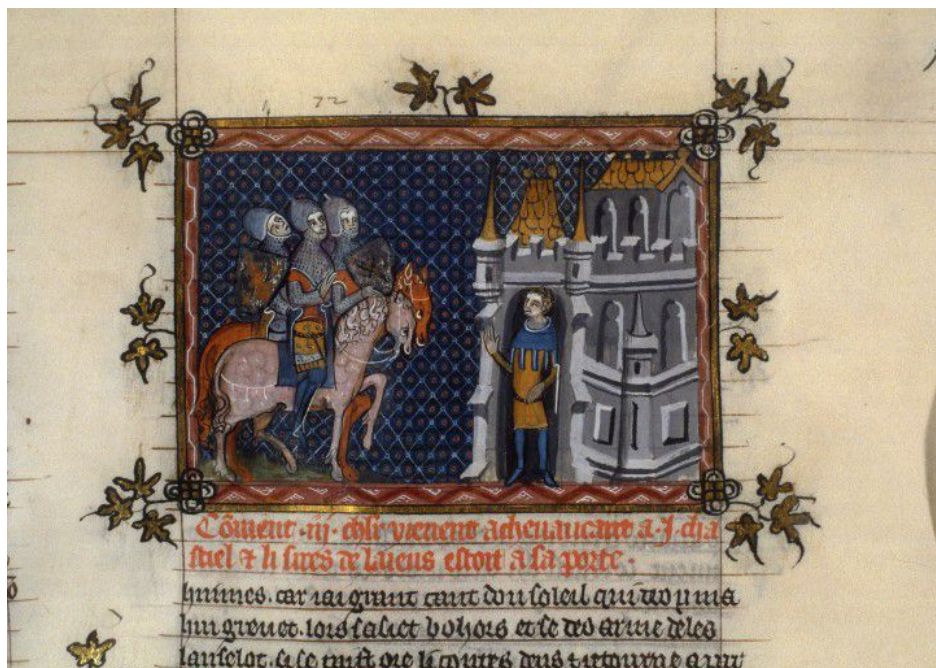 72
Cōment .iij. chlr vienent achevaucant a .J. cha
stiel & li sires de laiens estoit a sa porte.
lui mes. car iai grant caut dou soleil qui
hui greuet. lors saset bohors et se desarme deles
lanselot. si se taist ore li contes deus & retourne a